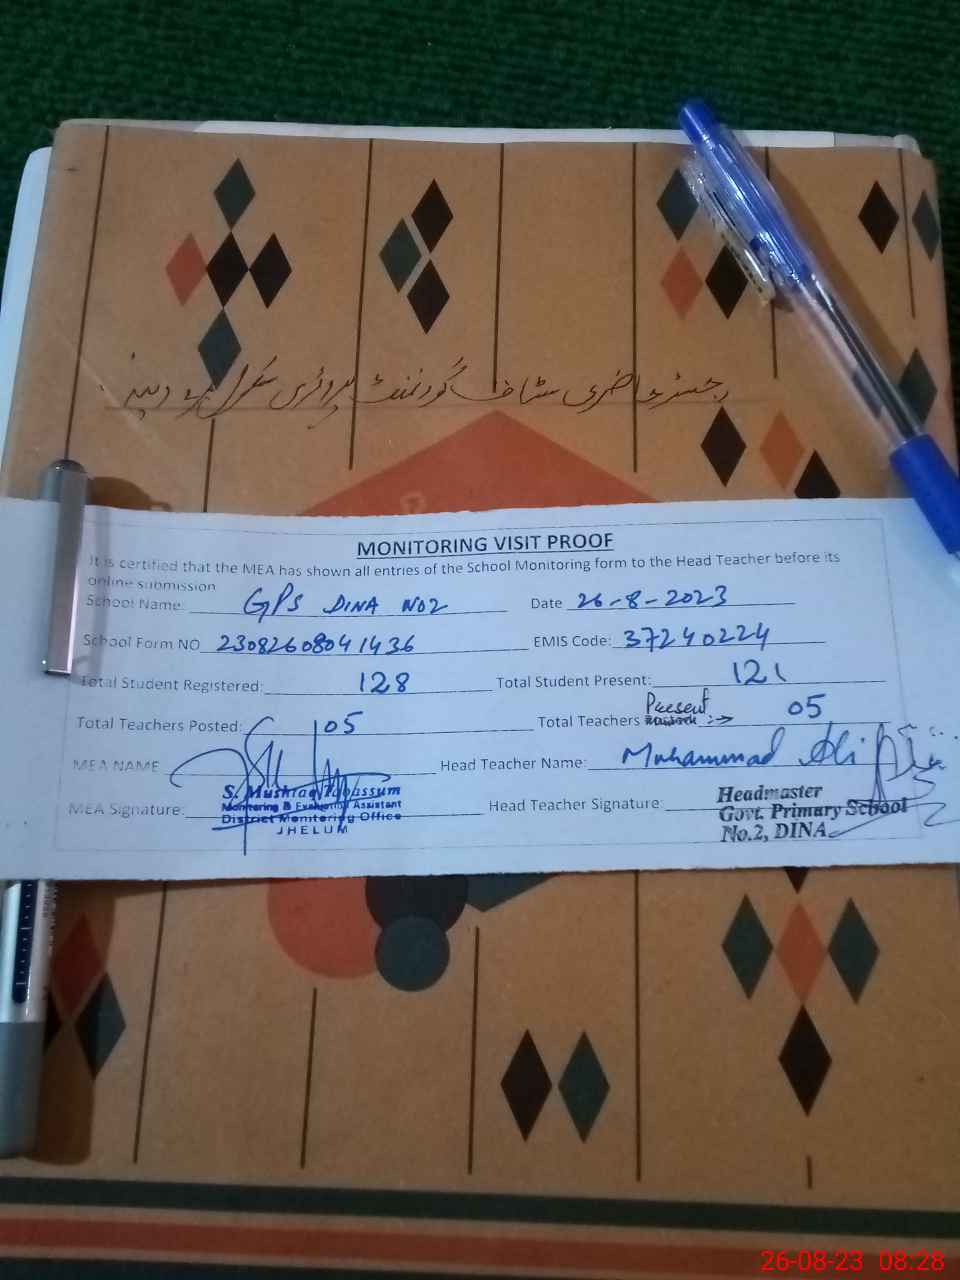 رجسٹر حاضری سٹاف گورنمنٹ پرائمری سکول نمبر 2 دینہ
MONITORING VISIT PROOF
It is certified that the MEA has shown all entries of the School Monitoring form to the Head Teacher before its
online submission
School Name: GPS DINA NO2 Date 26-8-2023
School Form NO 2308260804 1436 EMIS Code: 37240224
Total Student Registered: 128 Total Student Present: 121
Total Teachers Posted: 05 Total Teachers Present :→ 05
MEA NAME Head Teacher Name: Muhammad Ali
MEA Signature: Head Teacher Signature:
S. Mushtaq Tabassum
Monitoring & Evaluation Assistant
District Monitoring Office
JHELUM
Headmaster
Govt. Primary School
No.2, DINA
26-08-23 08:28